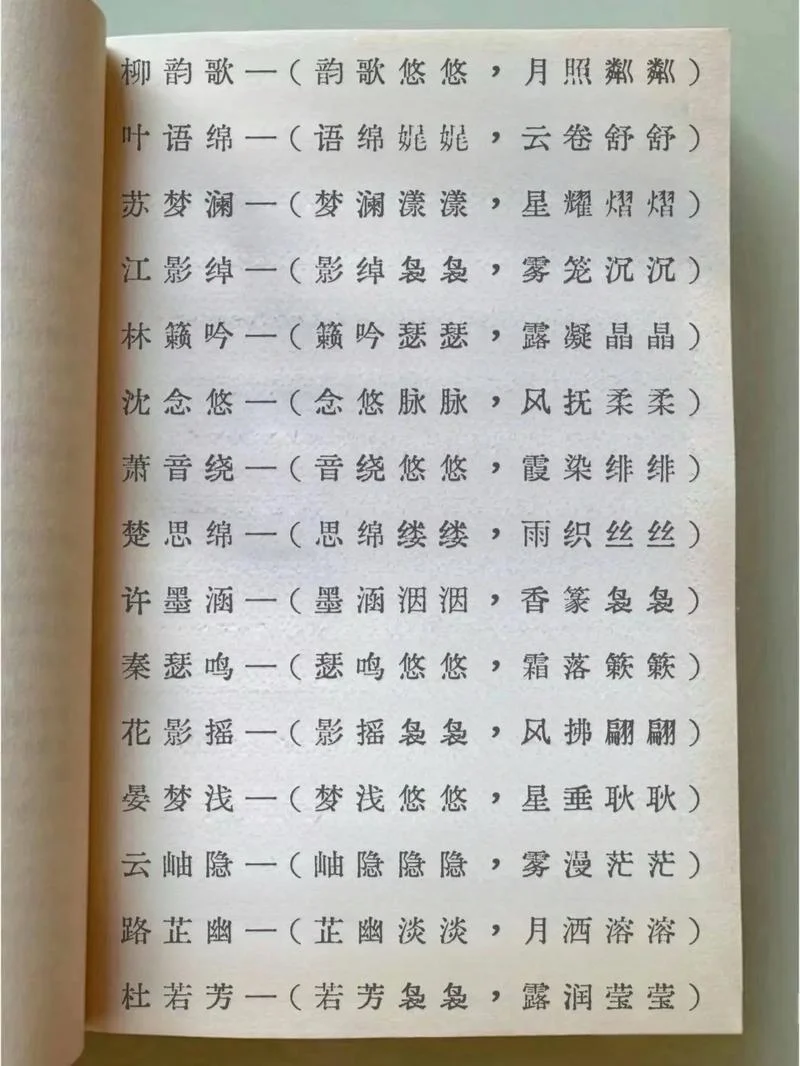 柳韵歌—(韵歌悠悠，月照粼粼)
叶语绵—(语绵娓娓，云卷舒舒)
苏梦澜—(梦澜漾漾，星耀熠熠)
江影绰—(影绰袅袅，雾笼沉沉)
林籁吟—(籁吟瑟瑟，露凝晶晶)
沈念悠—(念悠脉脉，风抚柔柔)
萧音绕—(音绕悠悠，霞染绯绯)
楚思绵—(思绵缕缕，雨织丝丝)
许墨涵—(墨涵洇洇，香篆袅袅)
秦瑟鸣—(瑟鸣悠悠，霜落簌簌)
花影摇—(影摇袅袅，风拂翩翩)
晏梦浅—(梦浅悠悠，星垂耿耿)
云岫隐—(岫隐隐隐，雾漫茫茫)
路芷幽—(芷幽淡淡，月洒溶溶)
杜若芳—(若芳袅袅，露润莹莹)